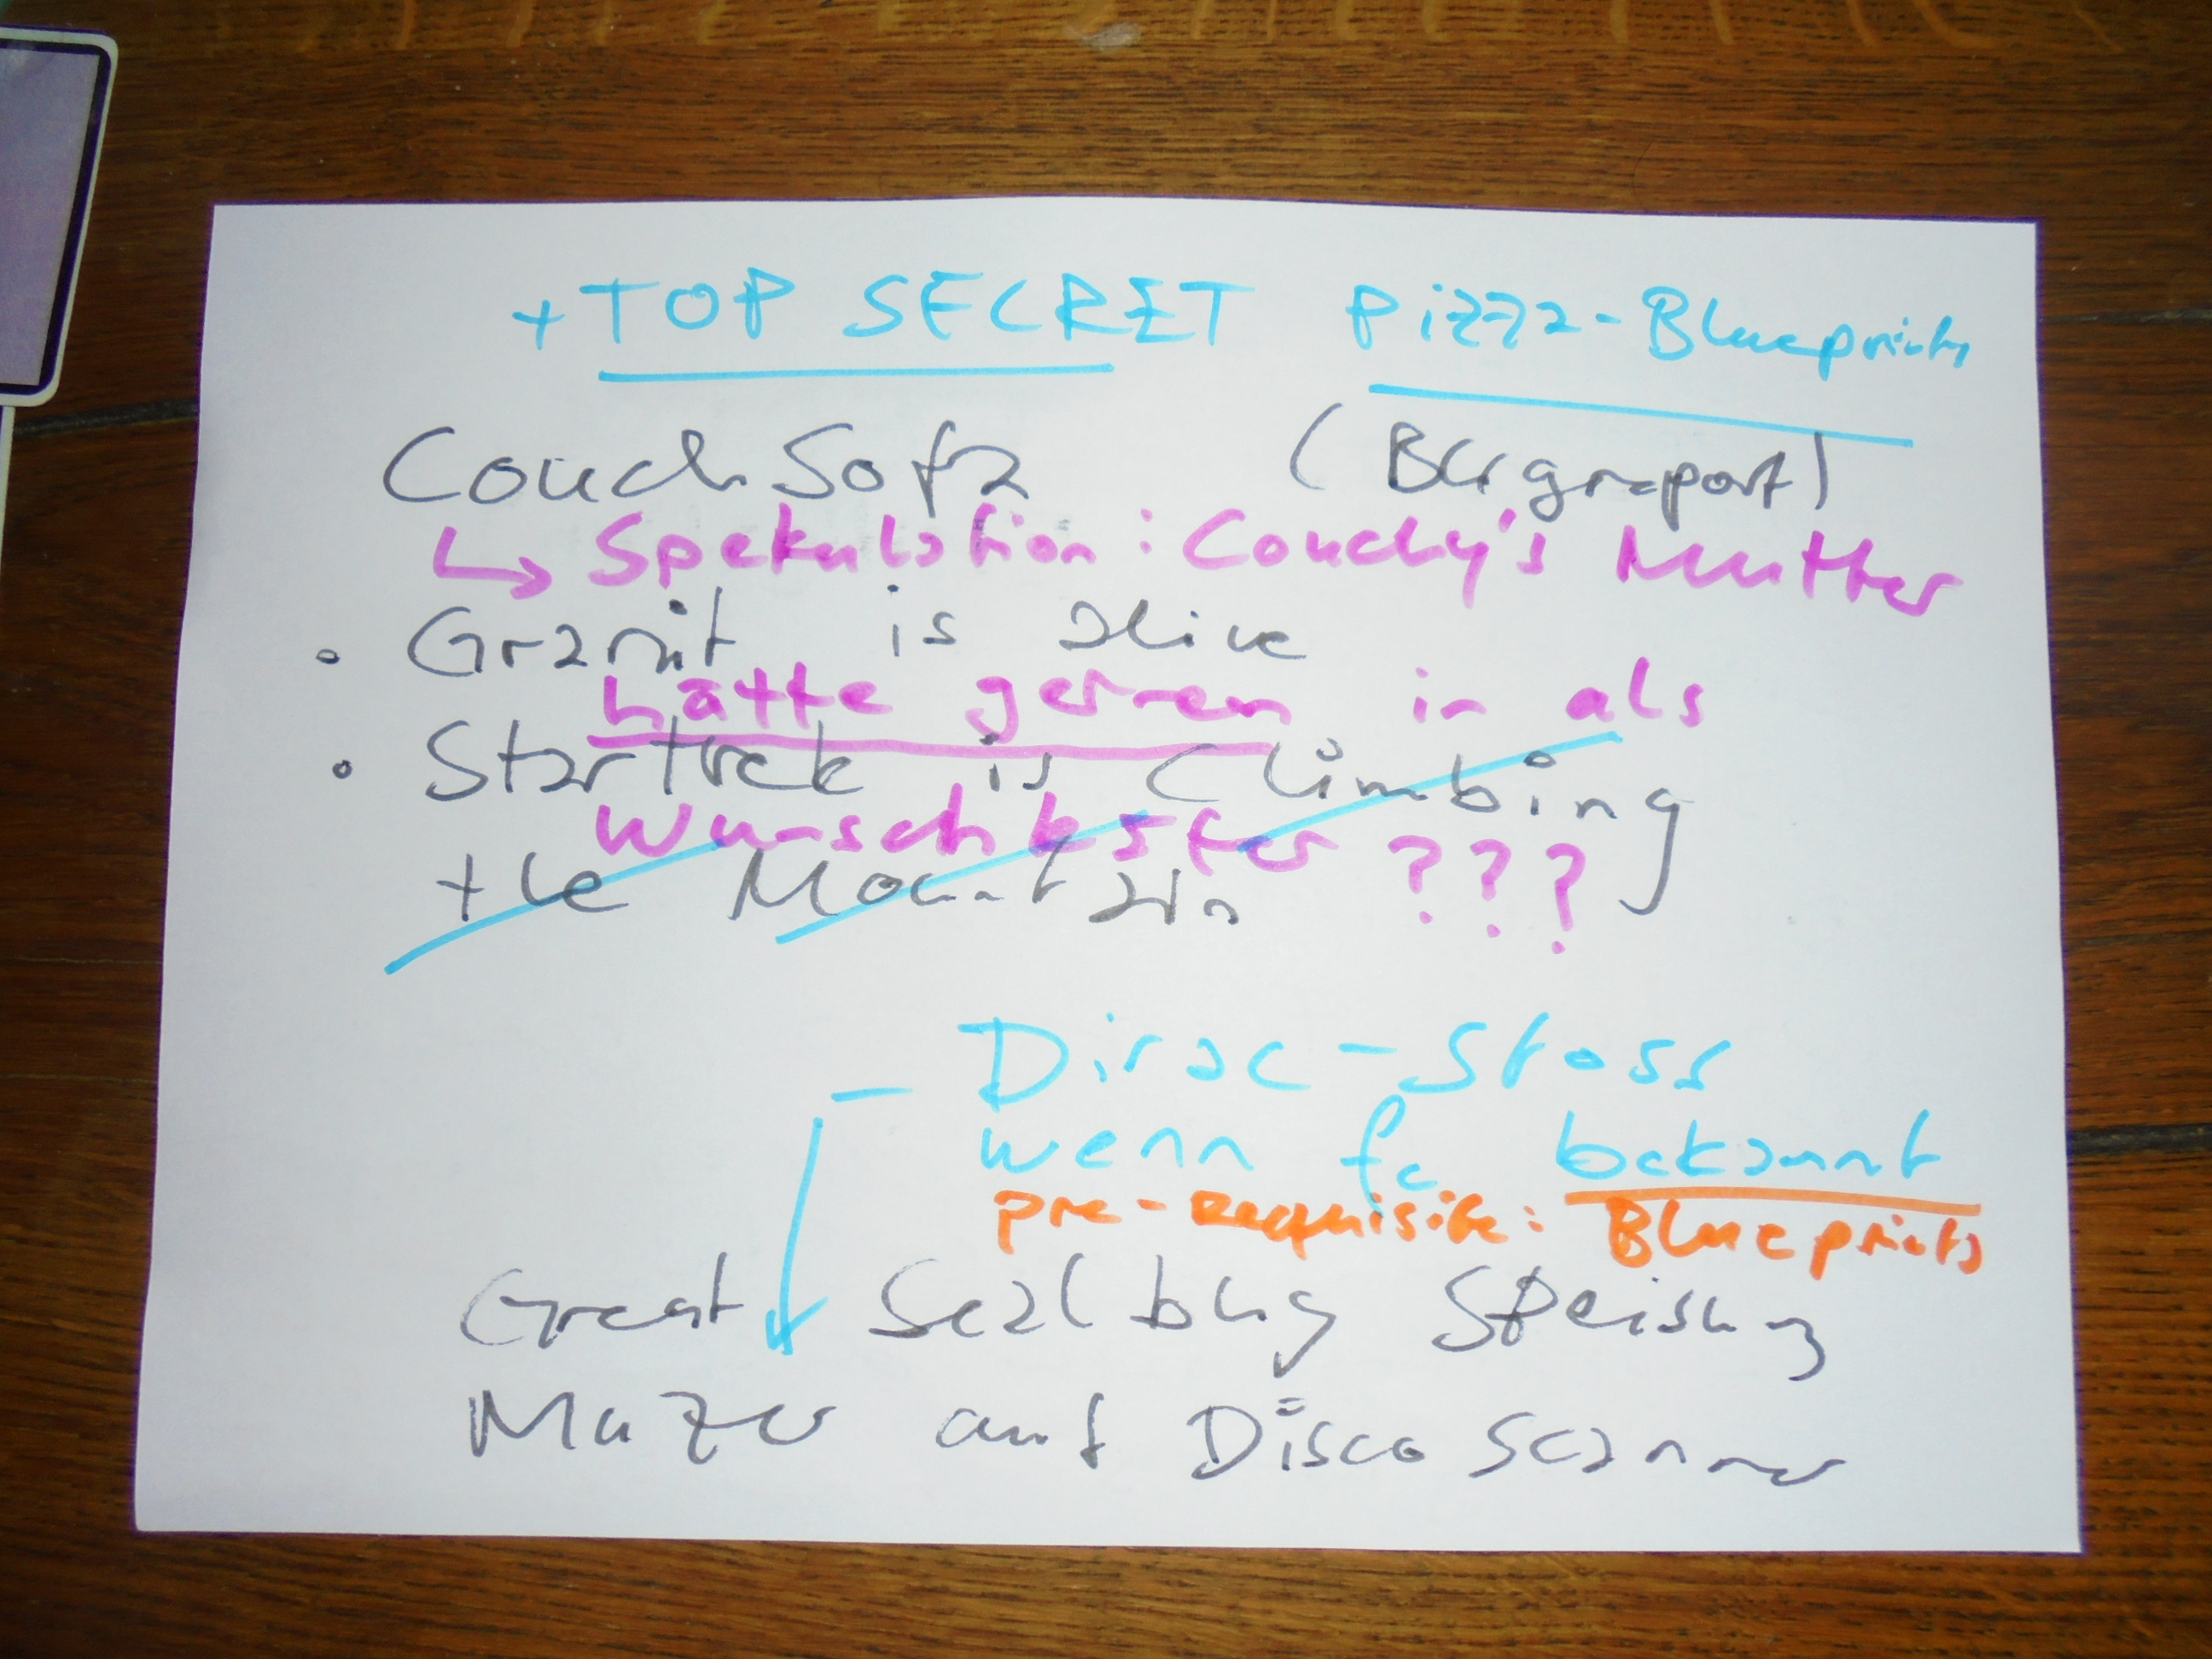 + TOP SECRET Pizza-Blueprints
CouchSofa (Bugreport)
↳ Spekulation: Couchy's Mutter
• Granit is alive
hätte gernen in als
• Startrek is Climbing
Wunschkster ???
the Mountain
- Dirac-Stoss
wenn fc bekannt
pre-requisite: Blueprints
Great Sealbug Speisung
Muzer auf Disco Scanner